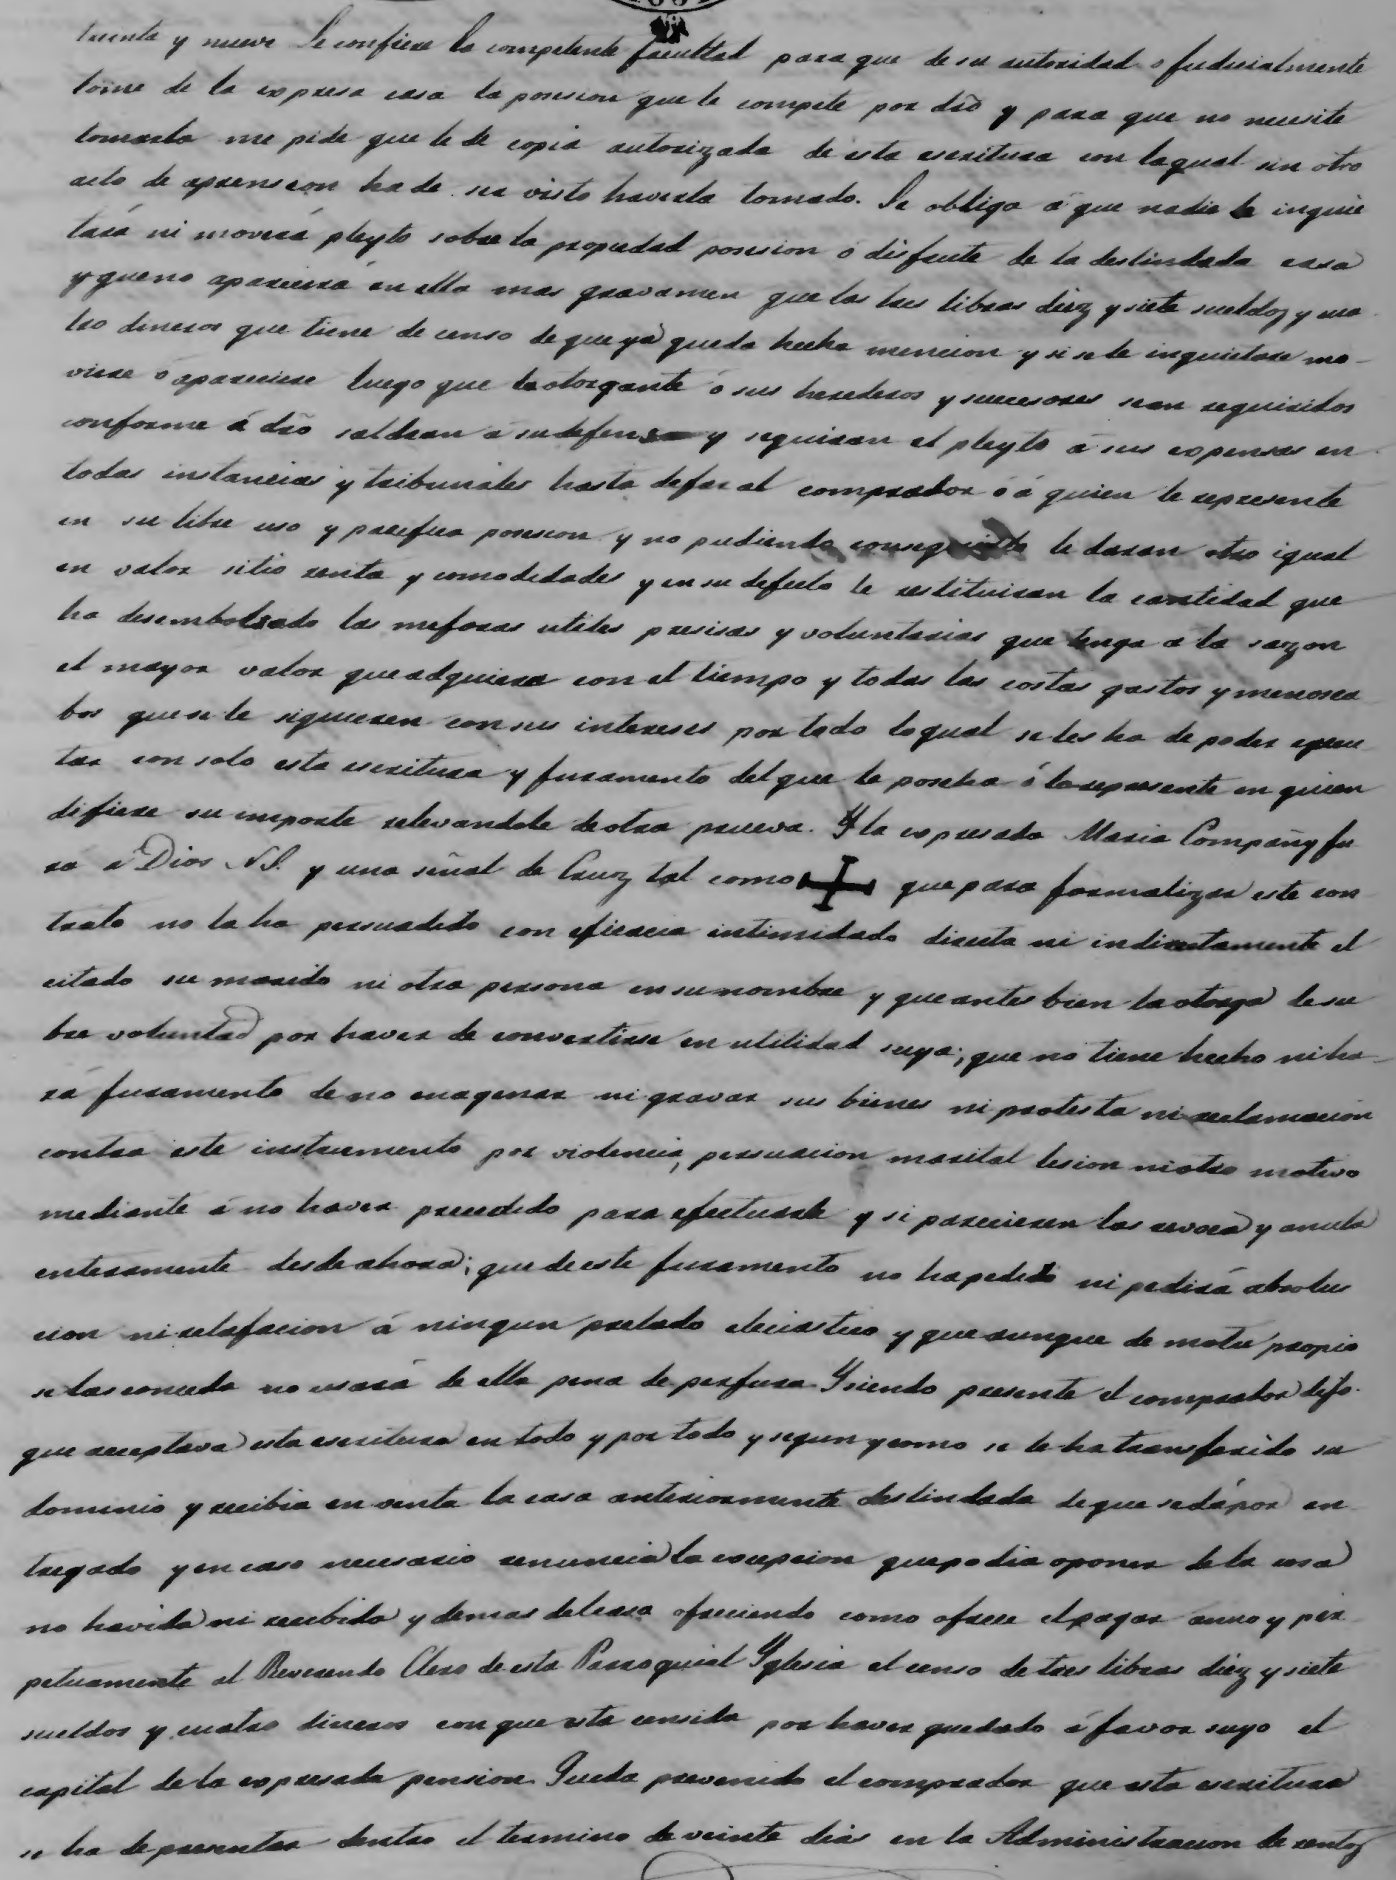 treinta y nueve Le confiere la competente facultad para que de su autoridad o judicialmente
tome de la expresa casa la posesion que le compete por dro y para que no necesite
tomarla me pide que le de copia autorizada de esta escritura con la qual sin otro
acto de aprension ha de ser visto haverla tomado. Se obliga á que nadie le inquie
tará ni moverá pleyto sobre la propiedad posesion ó disfrute de la deslindada casa
y que no aparecerá en ella mas gravamen que las tres libras diez y siete sueldos y cua
tro dineros que tiene de censo de que ya queda hecha mencion y si se le inquietare mo-
viere ó apareciere luego que la otorgante ó sus herederos y succesores sean requiridos
conforme á dro saldran á su defensa y seguiran el pleyto á sus expensas en
todas instancias y tribunales hasta dejar al comprador ó á quien le represente
en su libre uso y pacifica posesion y no pudiendo conseguirlo le daran otro igual
en valor sitio renta y comodidades y en su defecto le restituiran la cantidad que
ha desembolsado las mejoras utiles precisas y voluntarias que tenga a la sazon
el mayor valor que adquiera con el tiempo y todas las costas gastos y menosca
bos que se le siguieren con sus intereses por todo lo qual se les ha de poder execu
tar con solo esta escritura y juramento del que la posehea ó lo represente en quien
difiere su importe relevandole de otra prueva. Y la expresada Maria Compañy ju
ra á Dios N.S. y una señal de Cruz tal como que para formalizar este con
trato no la ha persuadido con eficacia intimidado directa ni indirectamente el
citado su marido ni otra persona en su nombre y que antes bien la otorga de su
bre voluntad por haver de convertirse en utilidad suya; que no tiene hecho ni ha-
rá juramento de no enagenar ni gravar sus bienes ni protesta ni reclamacion
contra este instrumento por violencia, persuacion marital lesion ni otro motivo
mediante á no haver precedido para efectuarle y si parecieren las revoca y anula
enteramente desde ahora; que de este juramento no ha pedido ni pedirá absolu
cion ni relajacion á ningun prelado eleciastico y que aunque de motu propio
se las conceda no usará de ella pena de perjura. Y siendo presente el comprador dijo.
que aceptava esta escritura en todo y por todo y segun y como se le ha transferido su
dominio y recibia en venta la casa anteriormente deslindada de que se dá por en
tregado y en caso necesario renuncia la excepcion que podia oponer de la cosa
no havida ni recibida y demas del caso ofreciendo como ofrece el pagar annuo y per
petuamente al Reverendo Clero de esta Parroquial Yglesia el censo de tres libras diez y siete
sueldos y cuatro dineros con que esta censida por haver quedado á favor suyo el
capital de la expresada pension. Queda prevenido el comprador que esta escritura
se ha de presentar dentro el termino de veinte dias en la Administracion de rentas